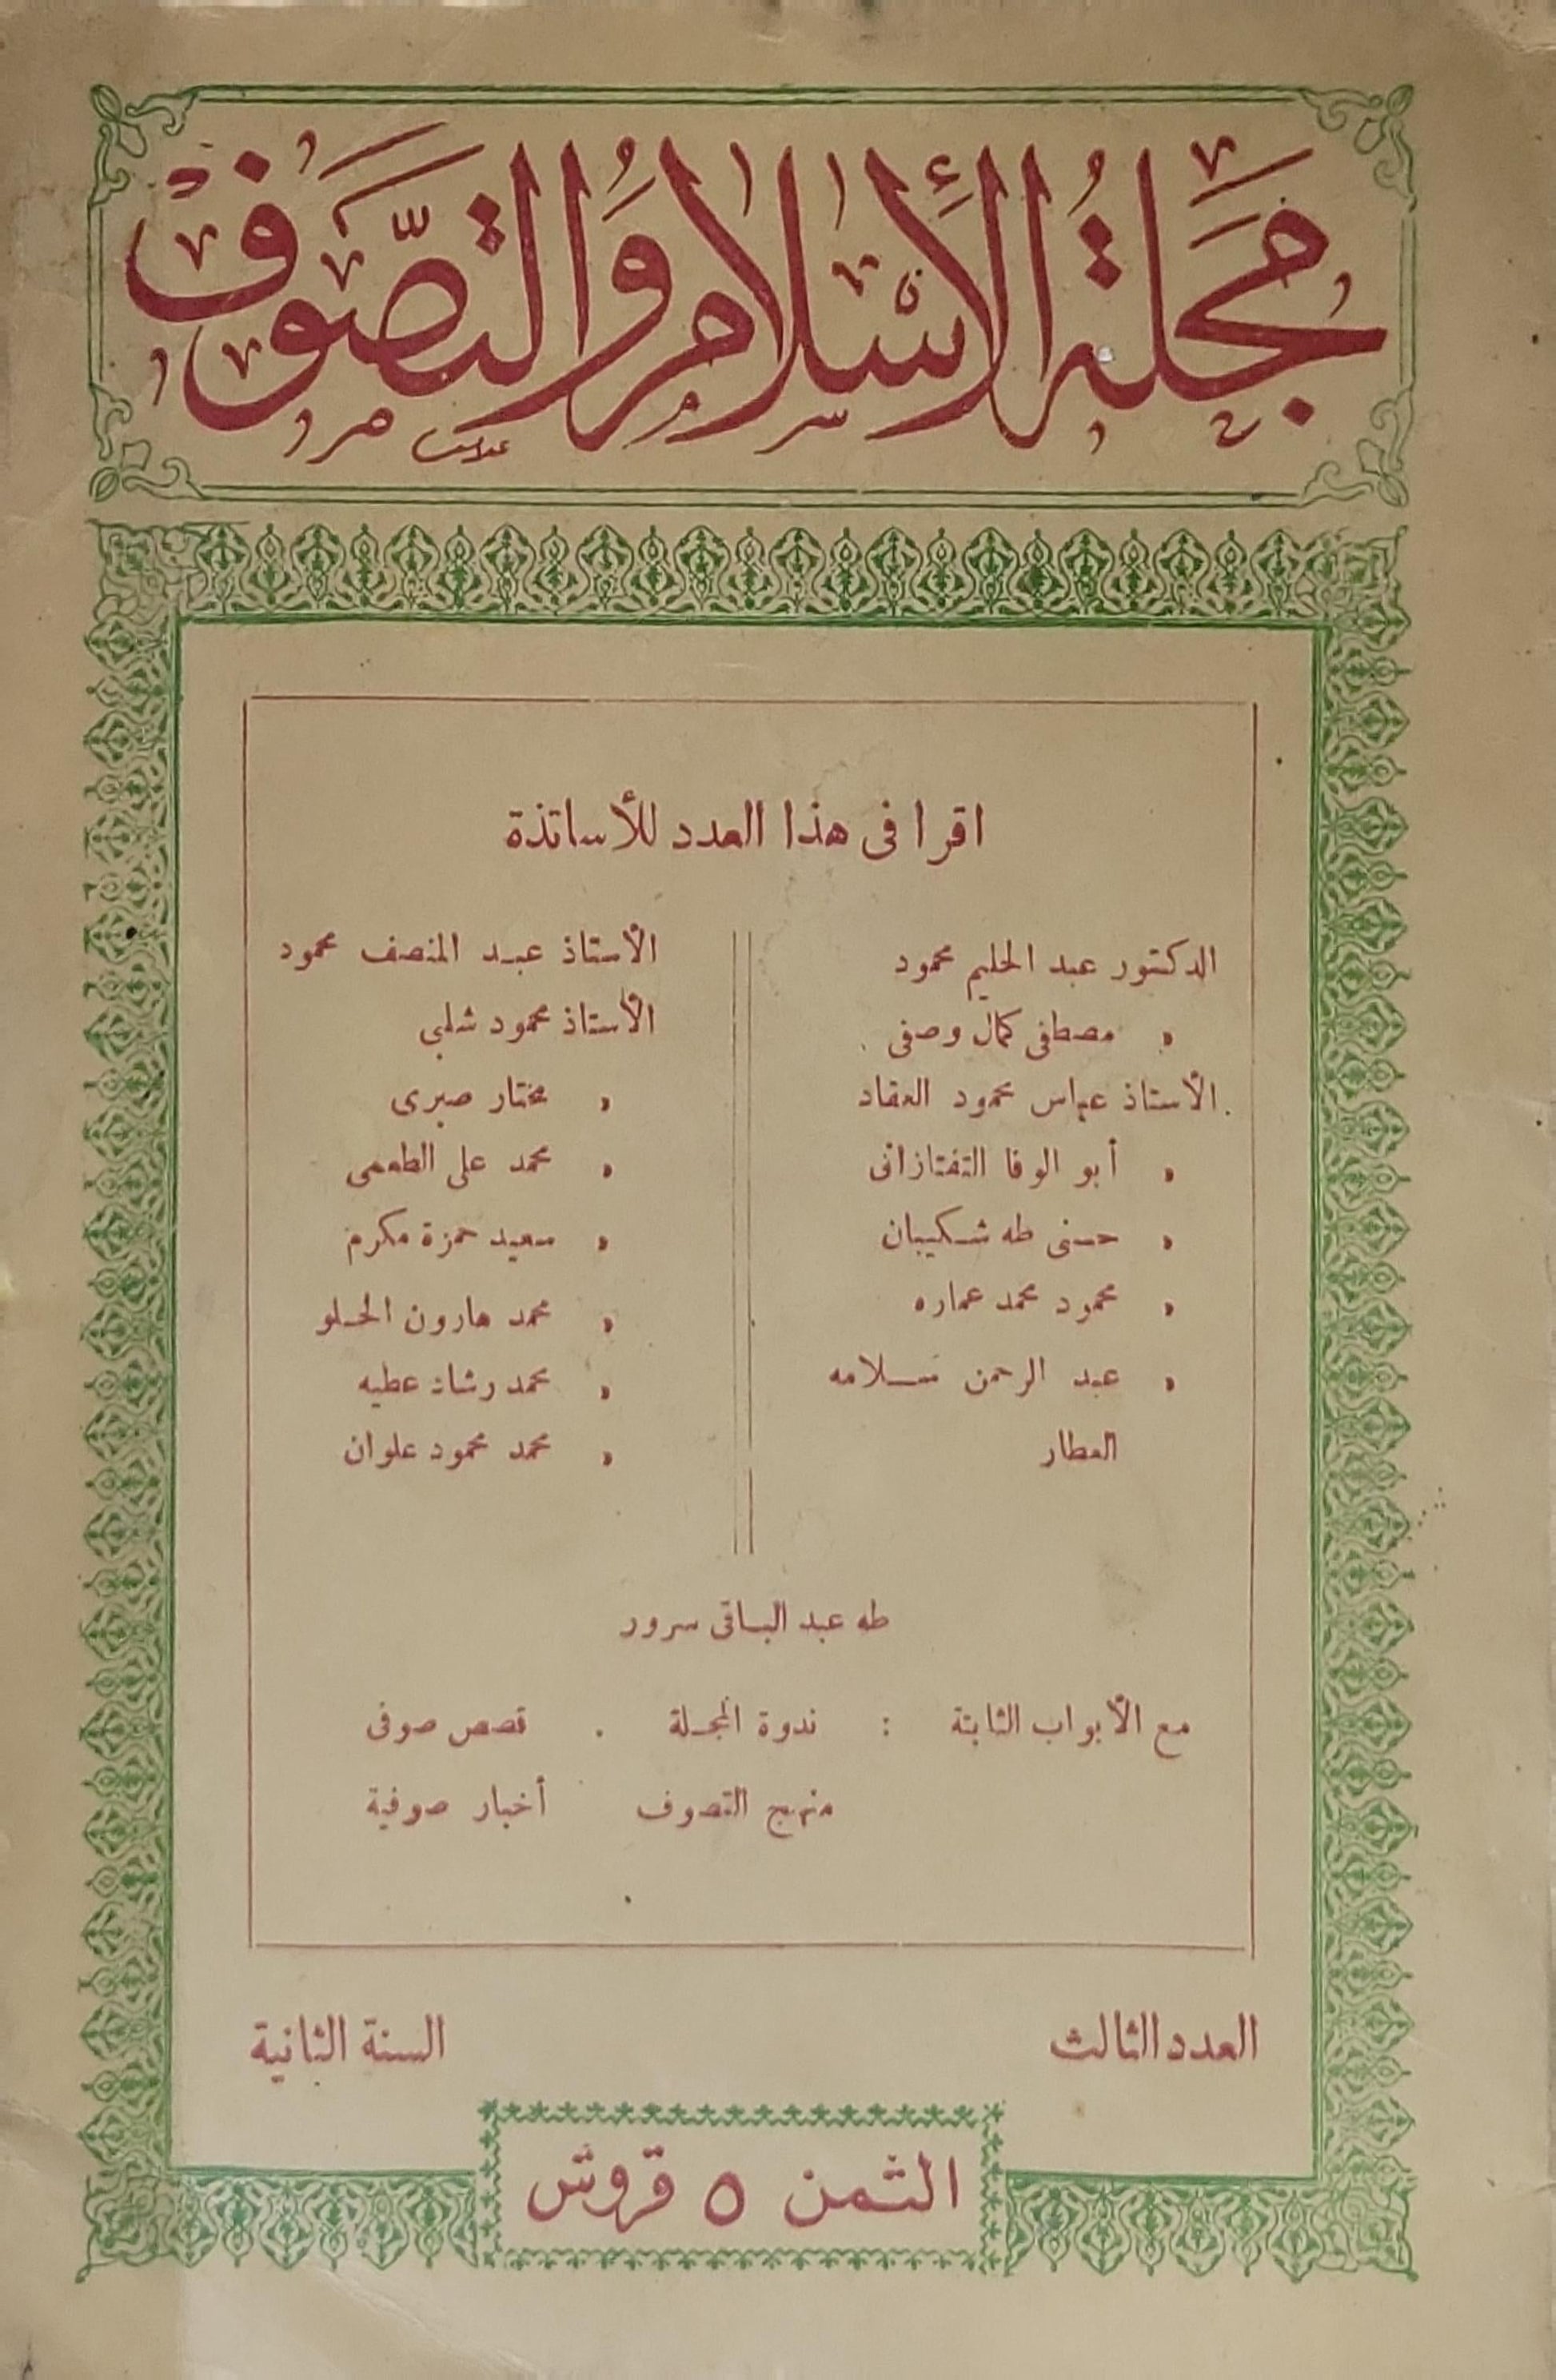 مجلة الإسلام والتصوف
اقرا فى هذا العدد للأساتذة
الدكتور عبد الحليم محمود
» مصطفى كمال وصفى
الأستاذ عباس محمود العقاد
» أبو الوفا التفتازانى
» حسنى طه شكيبان
» محمود محمد عماره
» عبد الرحمن سلامه
العطار
الأستاذ عبد المنصف محمود
الأستاذ محمود شلبي
» مختار صبرى
» محمد على الطعمى
» سعيد حمزة مكرم
» محمد هارون الحلو
» محمد رشاد عطيه
» محمد محمود علوان
طه عبد الباقى سرور
مع الأبواب الثابتة : ندوة المجلة . قصص صوفى
منهج التصوف أخبار صوفية
العدد الثالث
السنة الثانية
الثمن ٥ قروش